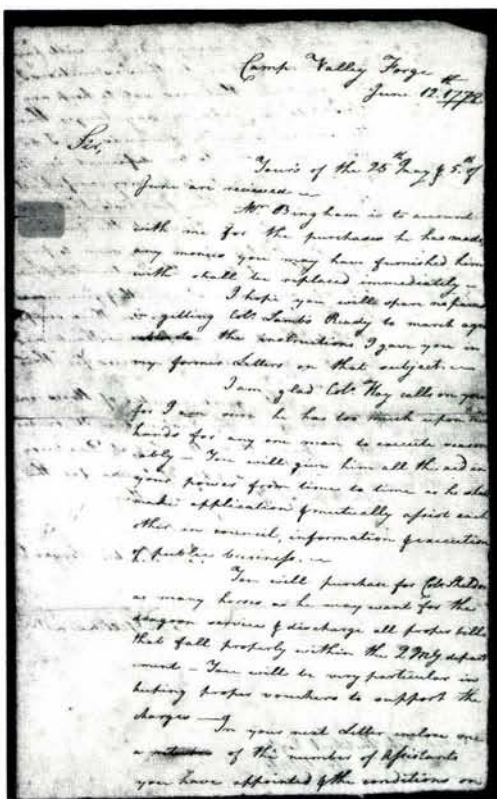 Camp Valley Forge
June 12th 1778
Sir,
Yours of the 25th May & 5th of
June are received
Mr Bingham is to account
with me for the purchases he has made,
any moneys you may have furnished him
with shall be replaced immediately
I hope you will spare no pains
in getting Colo Lambs Ready to march
the instructions I gave you in
my former Letters on that subject.
I am glad Colo Hay calls on you
for I am sure he has too much upon his
hands for any one man to execute reason
ably - You will give him all the aid in
your power from time to time as he shall
make application & mutually assist each
other in council, information & execution
of public business.
You will purchase for Colo Sheldon
as many horses as he may want for the
dragoon service & discharge all proper bills
that fall properly within the QMG depart
ment - You will be very particular in
keeping proper vouchers to support the
charges - In your next Letter enclose me
a of the number of Assistants
you have appointed & the conditions on